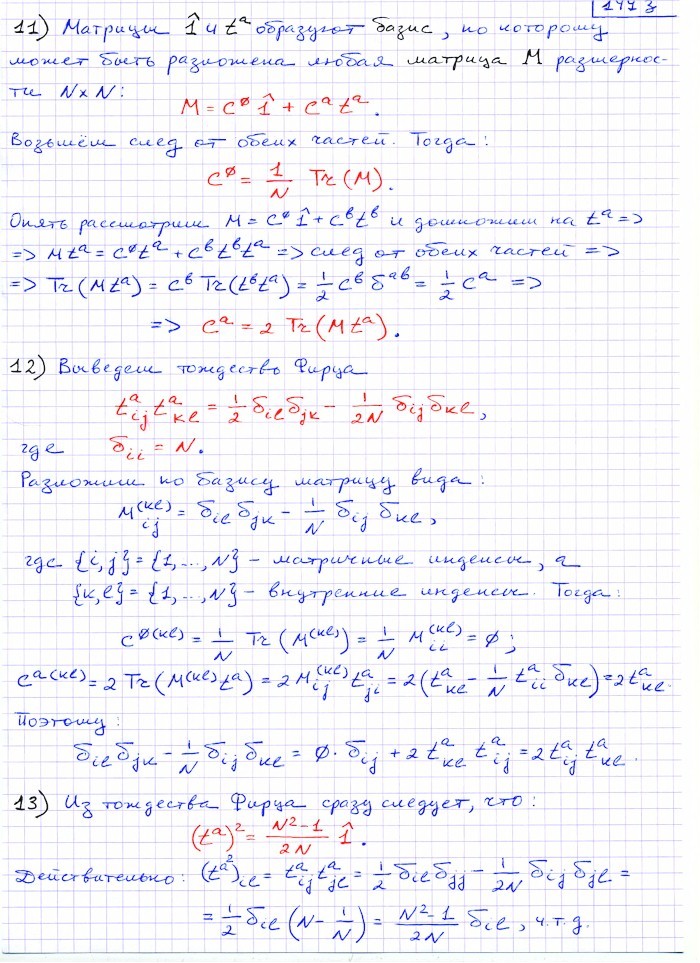 147 з
11) Матрицы 1̂ и tᵃ образуют базис, по которому
может быть разложена любая матрица M размернос-
ти N×N:
M = C⁰ 1̂ + Cᵃ tᵃ.
Возьмём след от обеих частей. Тогда:
C⁰ = 1/N Tr(M).
Опять рассмотрим M = C⁰ 1̂ + Cᵇtᵇ и домножим на tᵃ =>
=> Mtᵃ = C⁰tᵃ + Cᵇtᵇtᵃ => след от обеих частей =>
=> Tr(Mtᵃ) = Cᵇ Tr(tᵇtᵃ) = 1/2 Cᵇ δᵃᵇ = 1/2 Cᵃ =>
=> Cᵃ = 2 Tr(Mtᵃ).
12) Выведем тождество Фирца
tᵃ_ij tᵃ_kl = 1/2 δ_il δ_jk - 1/2N δ_ij δ_kl,
где δ_ii = N.
Разложим по базису матрицу вида:
M_ij^(kl) = δ_il δ_jk - 1/N δ_ij δ_kl,
где {i,j} = {1,...,N} - матричные индексы, а
{k,l} = {1,...,N} - внутренние индексы. Тогда:
C^0(kl) = 1/N Tr(M^(kl)) = 1/N M_ii^(kl) = 0;
C^a(kl) = 2 Tr(M^(kl) tᵃ) = 2 M_ij^(kl) tᵃ_ji = 2(tᵃ_kl - 1/N tᵃ_ii δ_kl) = 2tᵃ_kl.
Поэтому:
δ_il δ_jk - 1/N δ_ij δ_kl = 0·δ_ij + 2 tᵃ_kl tᵃ_ij = 2 tᵃ_ij tᵃ_kl.
13) Из тождества Фирца сразу следует, что:
(tᵃ)² = N²-1/2N 1̂.
Действительно: (tᵃ²)_il = tᵃ_ij tᵃ_jl = 1/2 δ_il δ_jj - 1/2N δ_ij δ_jl =
= 1/2 δ_il (N - 1/N) = N²-1/2N δ_il, ч.т.д.